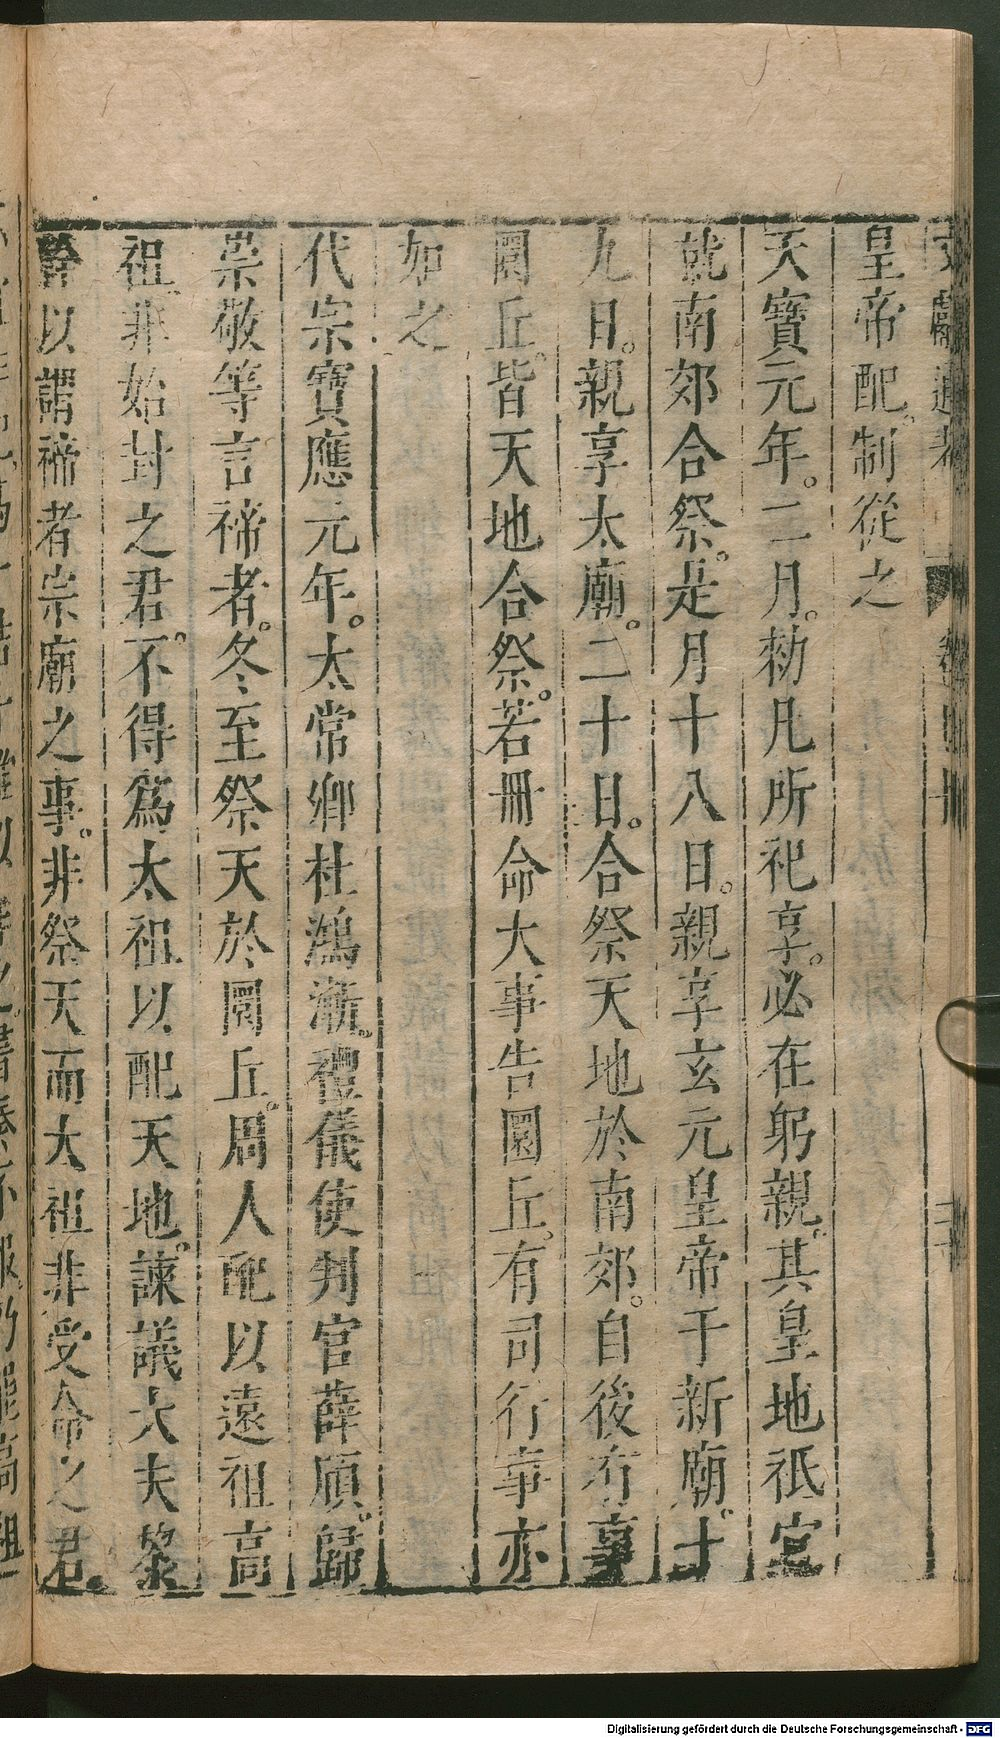 皇帝配。制從之
天寶元年。二月。勑凡所祀享。必在躬親。其皇地祇宜
就南郊合祭。是月十八日。親享玄元皇帝于新廟。十
九日。親享太廟。二十日。合祭天地於南郊。自後有事
圜丘。皆天地合祭。若冊命大事告圜丘。有司行事亦
如之
代宗寶應元年。太常卿杜鴻漸。禮儀使判官薛頎。歸
崇敬等言禘者。冬至祭天於圜丘。周人配以遠祖高
祖。非始封之君。不得爲太祖以配天地。諫議大夫黎
幹以謂禘者宗廟之事。非祭天而太祖非受命之君。
Digitalisierung gefördert durch die Deutsche Forschungsgemeinschaft - DFG